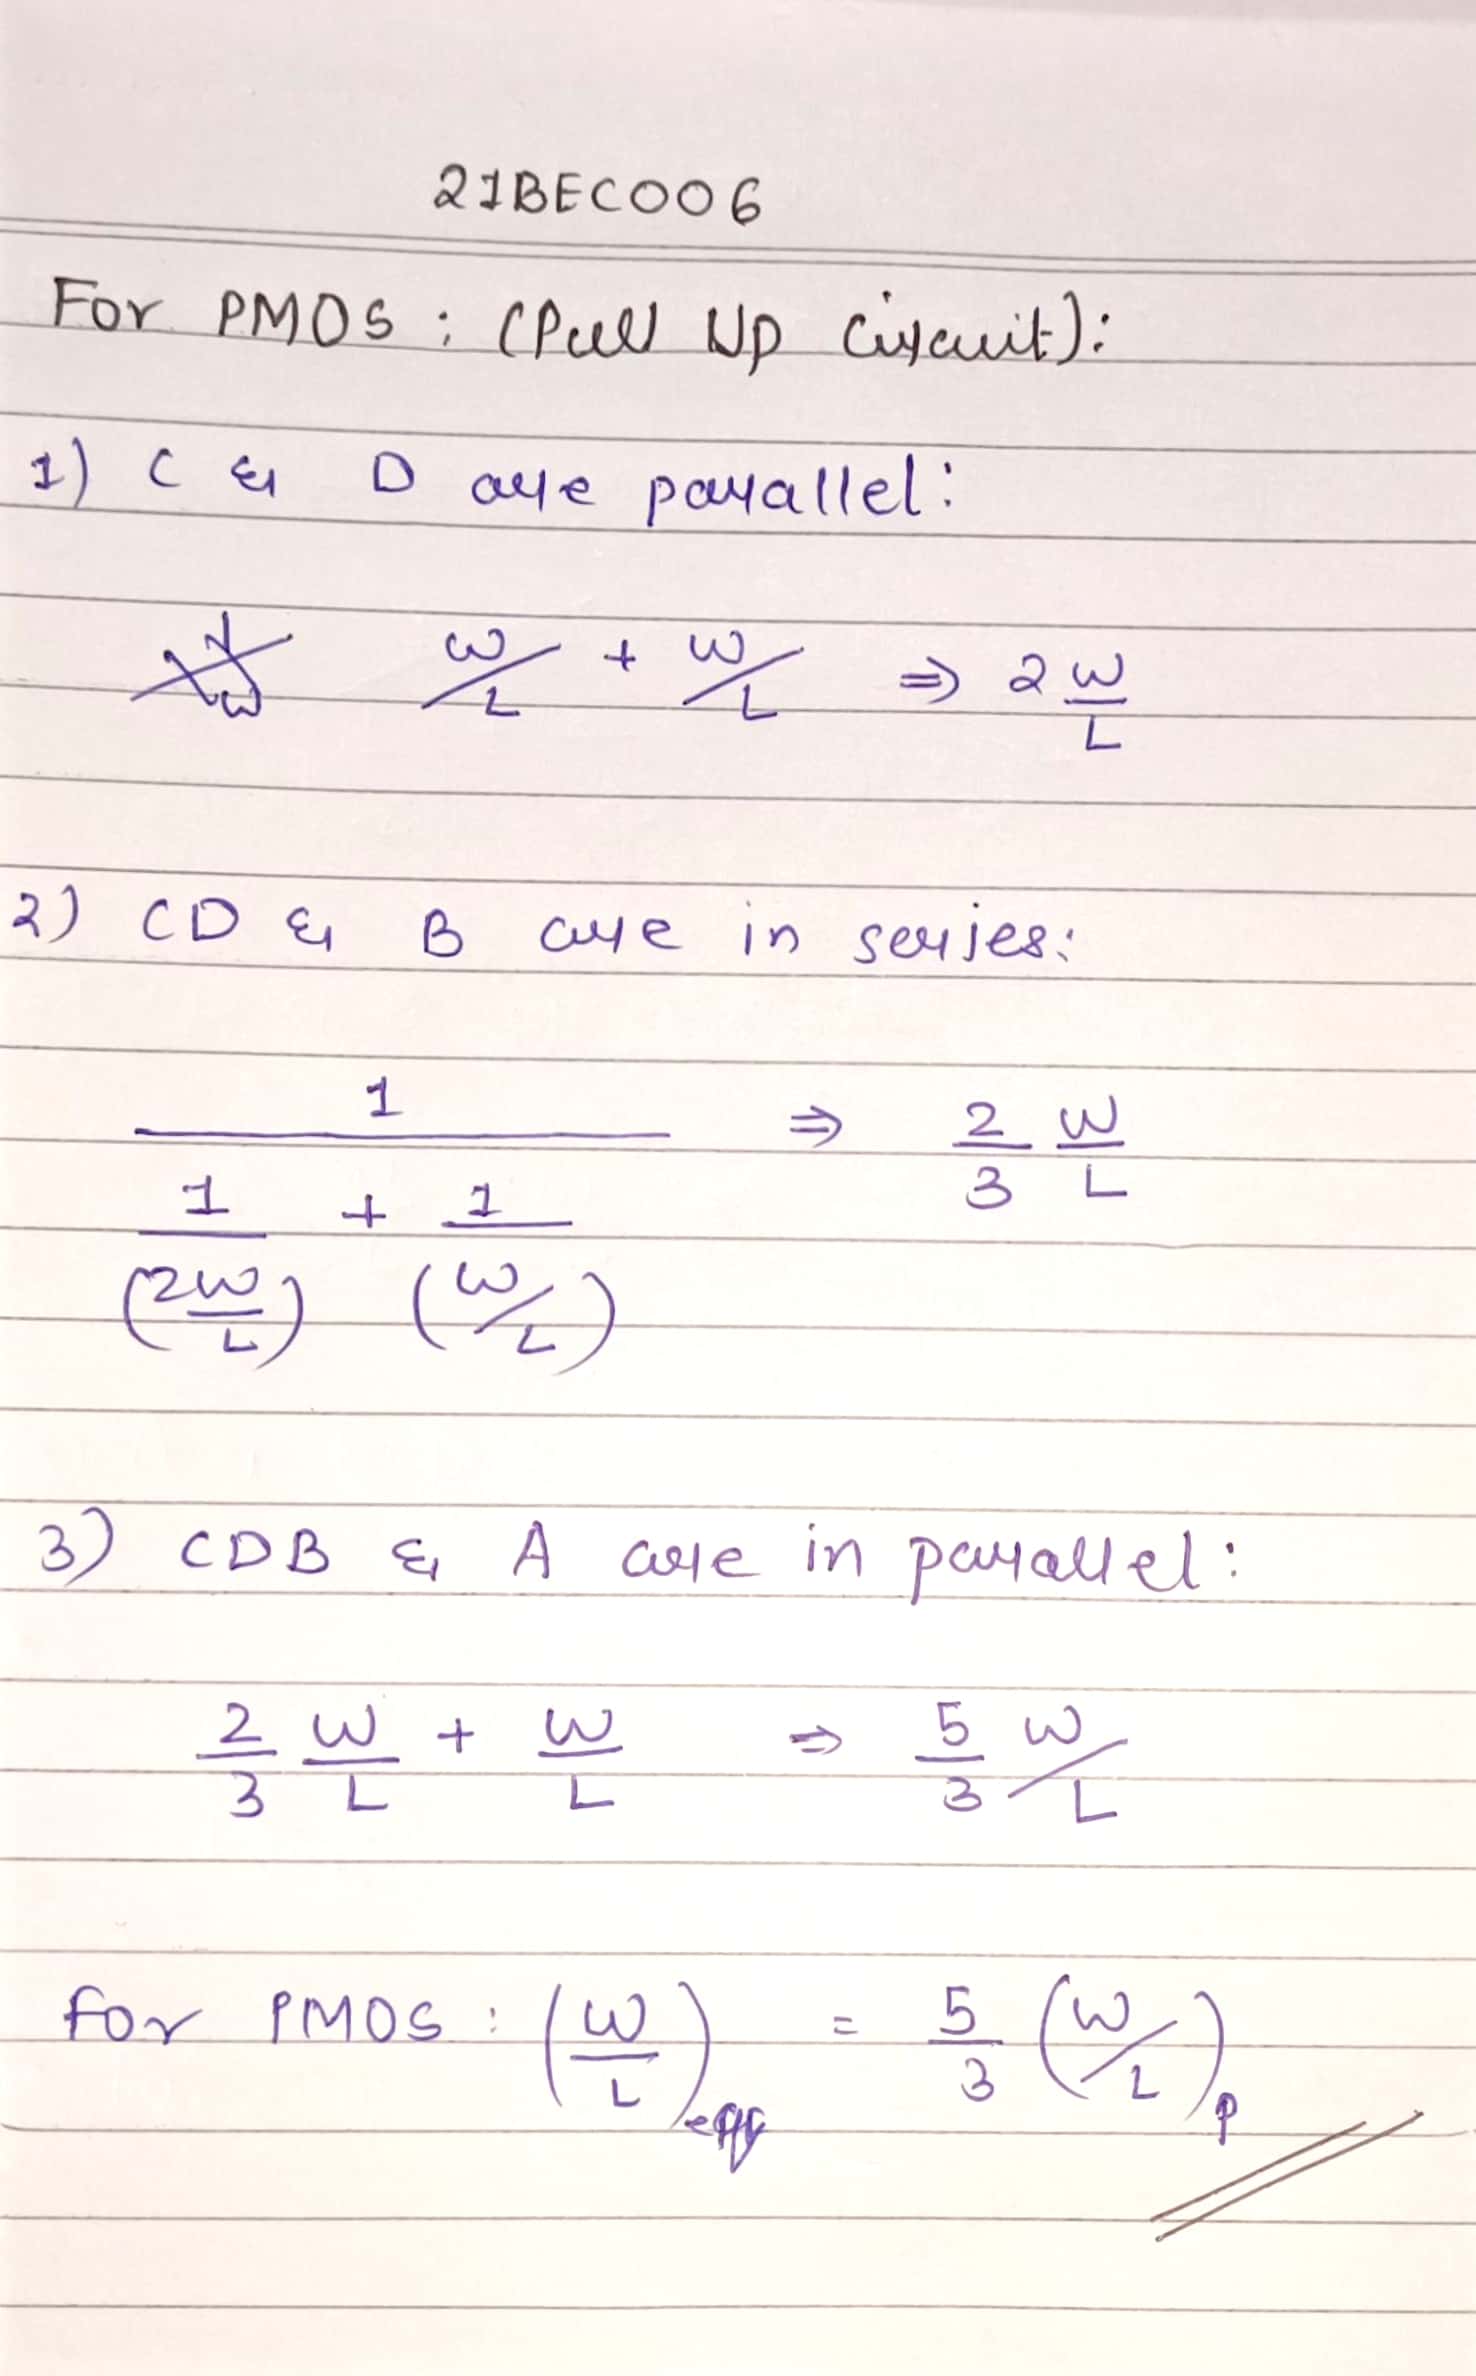 21BEC006
For PMOS : (Pull Up Circuit):
1) C & D are parallel:
W/L + W/L ⇒ 2 W/L
2) CD & B are in series:
1 / (1/(2W/L) + 1/(W/L)) ⇒ 2/3 W/L
3) CDB & A are in parallel:
2/3 W/L + W/L ⇒ 5/3 W/L
for PMOS : (W/L)eff = 5/3 (W/L)p